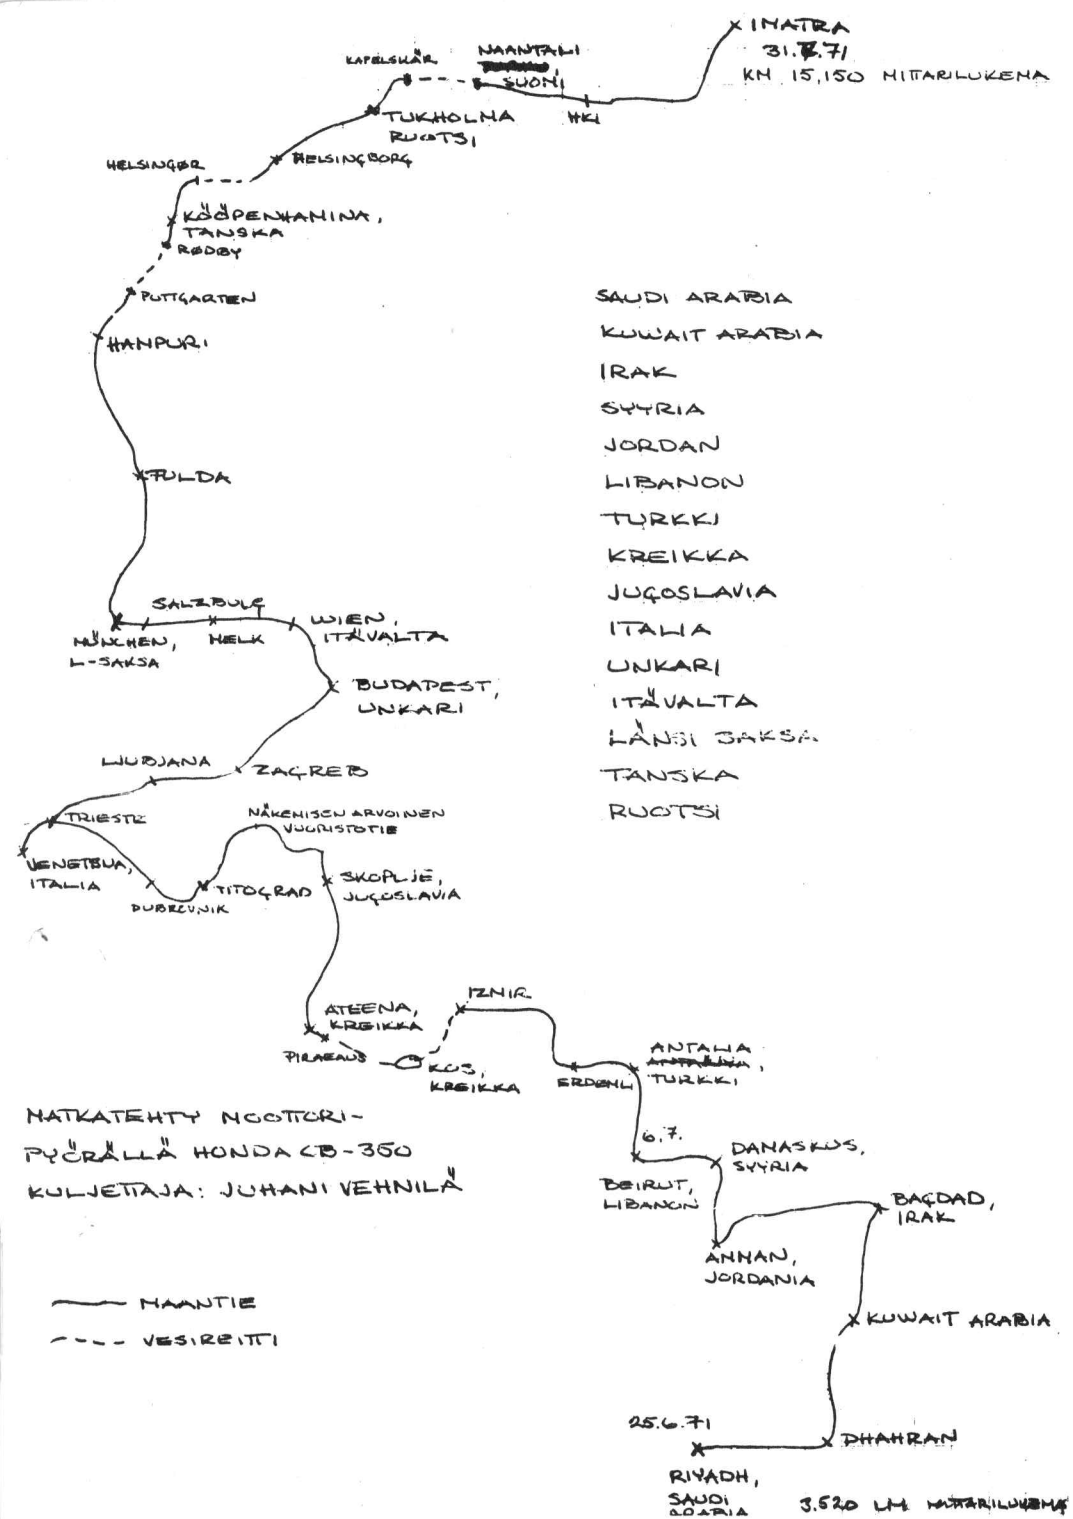 IMATRA
31.7.71
KM 15,150 MITTARILUKEMA
KAPELSKÄR
NAANTALI
SUOMI
HKI
TUKHOLMA
RUOTSI
HELSINGBORG
HELSINGØR
KÖÖPENHAMINA,
TANSKA
RØDBY
PUTTGARTEN
HAMPURI
FULDA
SALZBULG
MÜNCHEN,
L-SAKSA
MELK
WIEN,
ITÄVALTA
BUDAPEST,
UNKARI
LJUBJANA
ZAGREB
TRIESTE
VENETSIJA,
ITALIA
DUBREVNIK
TITOGRAD
NÄKEMISEN ARVOINEN
VUORISTOTIE
SKOPLJE,
JUGOSLAVIA
ATEENA,
KREIKKA
PIRAEAUS
KOS,
KREIKKA
IZMIR
ERDEMLI
ANTALIA
TURKKI
6.7.
BEIRUT,
LIBANON
DAMASKUS,
SYYRIA
AMMAN,
JORDANIA
BAGDAD,
IRAK
KUWAIT ARABIA
DHAHRAN
25.6.71
RIYADH,
SAUDI
ARABIA
3.520 KM MITTARILUKEMA
SAUDI ARABIA
KUWAIT ARABIA
IRAK
SYYRIA
JORDAN
LIBANON
TURKKI
KREIKKA
JUGOSLAVIA
ITALIA
UNKARI
ITÄVALTA
LÄNSI SAKSA
TANSKA
RUOTSI
MATKATEHTY MOOTTORI-
PYÖRÄLLÄ HONDA CB-350
KULJETTAJA: JUHANI VEHNILÄ
MAANTIE
VESIREITTI